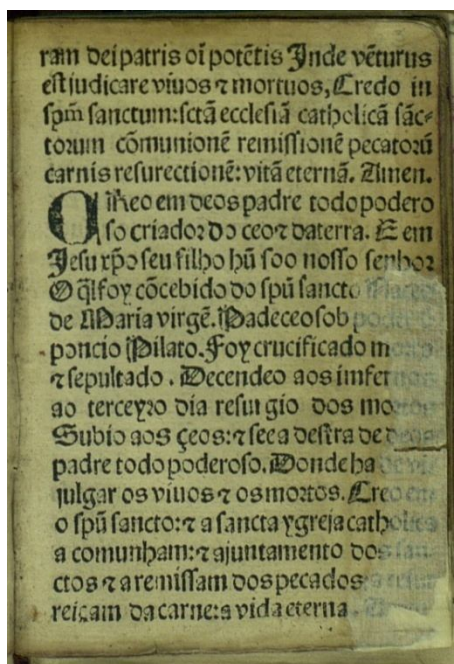 ram dei patris oı̃ potẽtis Inde vẽturus
est judicare viuos ⁊ mortuos, Credo in
spm̃ sanctum: sctã ecclesiã catholicã sãc⸗
torum cõmunionẽ remissionẽ pecatorũ
carnis resurectionẽ: vitã eternã. Amen.
reo em deos padre todo podero
so criador do ceo ⁊ da terra. E em
Jesu xp̃o seu filho hũ soo nosso senhor
O q̃l foy cõcebido do spũ sancto
de Maria virgẽ. Padeceo sob
poncio Pilato. Foy crucificado m
⁊ sepultado. Decendeo aos infer
ao terceyro dia resurgio dos mo
Subio aos çeos: ⁊ see a destra de
padre todo poderoso. Donde ha
julgar os viuos ⁊ os mortos. Creo
o spũ sancto: ⁊ a sancta ygreja catholica
a comunham: ⁊ ajuntamento dos san
ctos ⁊ a remissam dos pecados
reiçam da carne: a vida eterna.